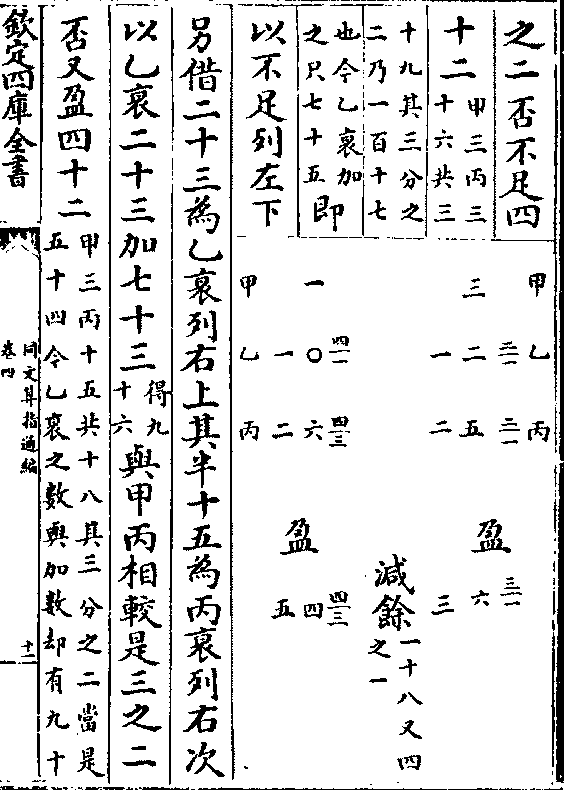 之二否不足四
十二甲三丙三
十六共三
十九其三分之
二乃一百十七
也今乙衰加
之只七十五即
以不足列左下
甲 乙 丙
三一 三一
三 二 五
一 二
盈 三一
六
三
減餘一十八又四
之一
四一 四三
一 〇 六
一 二
盈 四三
四
五
甲 乙 丙
另借二十三為乙衰列右上其半十五為丙衰列右次
以乙衰二十三加七十三得九
十六與甲丙相較是三之二
否又盈四十二甲三丙十五共十八其三分之二當是
五十四今乙衰之數與加數却有九十
欽定四庫全書
同文算指通編
卷四
十二